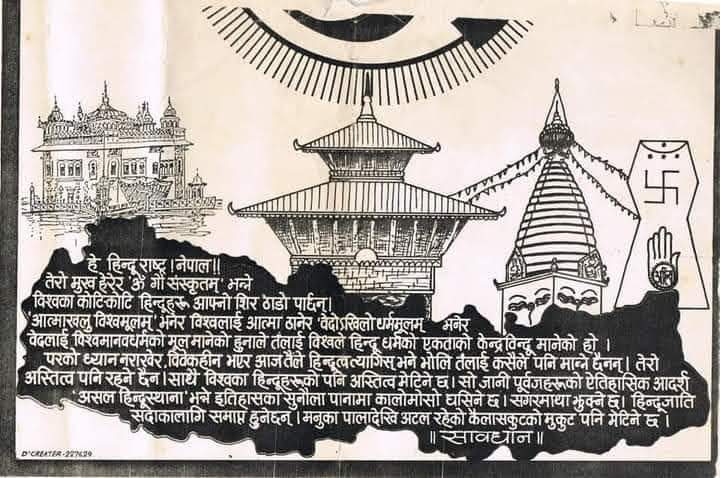 हे हिन्दू राष्ट्र ! नेपाल !!
तेरो मुख हेरेर 'अं गौ संस्कृतम्' भन्ने
विश्वका कोटिकोटि हिन्दुहरू आफ्नो शिर ठाडो पार्छन् ।
'आत्माखलु विश्वमूलम्' भनेर विश्वलाई आत्मा ठानेर 'वेदोऽखिलो धर्ममूलम्' भनेर
वेदलाई विश्वमानवधर्मको मूल मानेको हुनाले तँलाई विश्वले हिन्दू धर्मको एकताको केन्द्रविन्दू मानेको हो ।
परको ध्यान नराखेर, विवेकहीन भएर आज तैले हिन्दूत्व त्यागिस् भने भोलि तँलाई कसैले पनि मान्ने छैनन् । तेरो
अस्तित्व पनि रहने छैन । साथै विश्वका हिन्दूहरूको पनि अस्तित्व मेटिने छ । सो जानी पूर्वजहरूको ऐतिहासिक आदर्श
'असल हिन्दूस्थाना' भन्ने इतिहासका सुनौला पानामा कालोमोसो घसिने छ । सगरमाथा झुक्ने छ । हिन्दूजाति
सदाकालागि समाप्त हुनेछन् । मनुका पालादेखि अटल रहेको कैलासकुटको मुकुट पनि मेटिने छ ।
॥ सावधान ॥
D'CREATER-227624